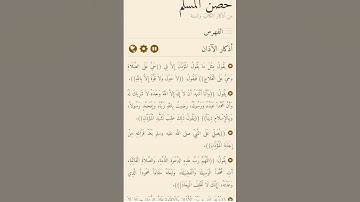 حصن المسلم
من أذكار الكتاب والسنة
الفهرس
أذكار الآذان
يَقُولُ مِثْلَ مَا يَقُولُ المُؤَذِّنُ إِلاَّ فِي ((حَيَّ عَلَى الصَّلاةِ
وَحَيَّ عَلَى الفَلاحِ)) فَيَقُولُ: ((لاَ حَوْلَ وَلاَ قُوَّةَ إِلاَّ بِاللهِ)).
يَقُولُ: ((وَأَنَا أَشْهَدُ أَنْ لاَ إِلَهَ إِلاَّ اللهُ وَحْدَهُ لاَ شَرِيكَ لَهُ
وَأَنَّ مُحَمَّداً عَبْدُهُ وَرَسُولُهُ، رَضِيتُ بِاللهِ رَبًّا، وَبِمُحَمَّدٍ رَسُولاً،
وَبِالإِسْلامِ دِيناً)) ((يَقُولُ ذَلِكَ عَقِبَ تَشَهُّدِ المُؤَذِّنِ)).
((يُصَلِّي عَلَى النَّبِيِّ صلى الله عليه وسلم بَعْدَ فَرَاغِهِ مِنْ
إِجَابَةِ المُؤَذِّنِ)).
يَقُولُ: ((اللَّهُمَّ رَبَّ هَذِهِ الدَّعْوَةِ التَّامَّةِ، وَالصَّلاةِ القَائِمَةِ،
آتِ مُحَمَّداً الوَسِيلَةَ وَالفَضِيلَةَ، وَابْعَثْهُ مَقَاماً مَحْمُوداً الَّذِي
وَعَدْتَهُ، إِنَّكَ لاَ تُخْلِفُ المِيعَادَ)).